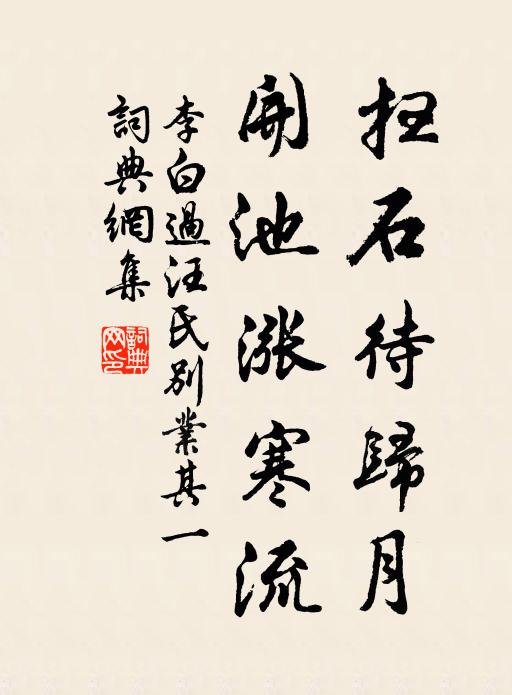 扫石待歸月
開池漲寒流
李白過汪氏別業其一
詞典網集
詞典網印